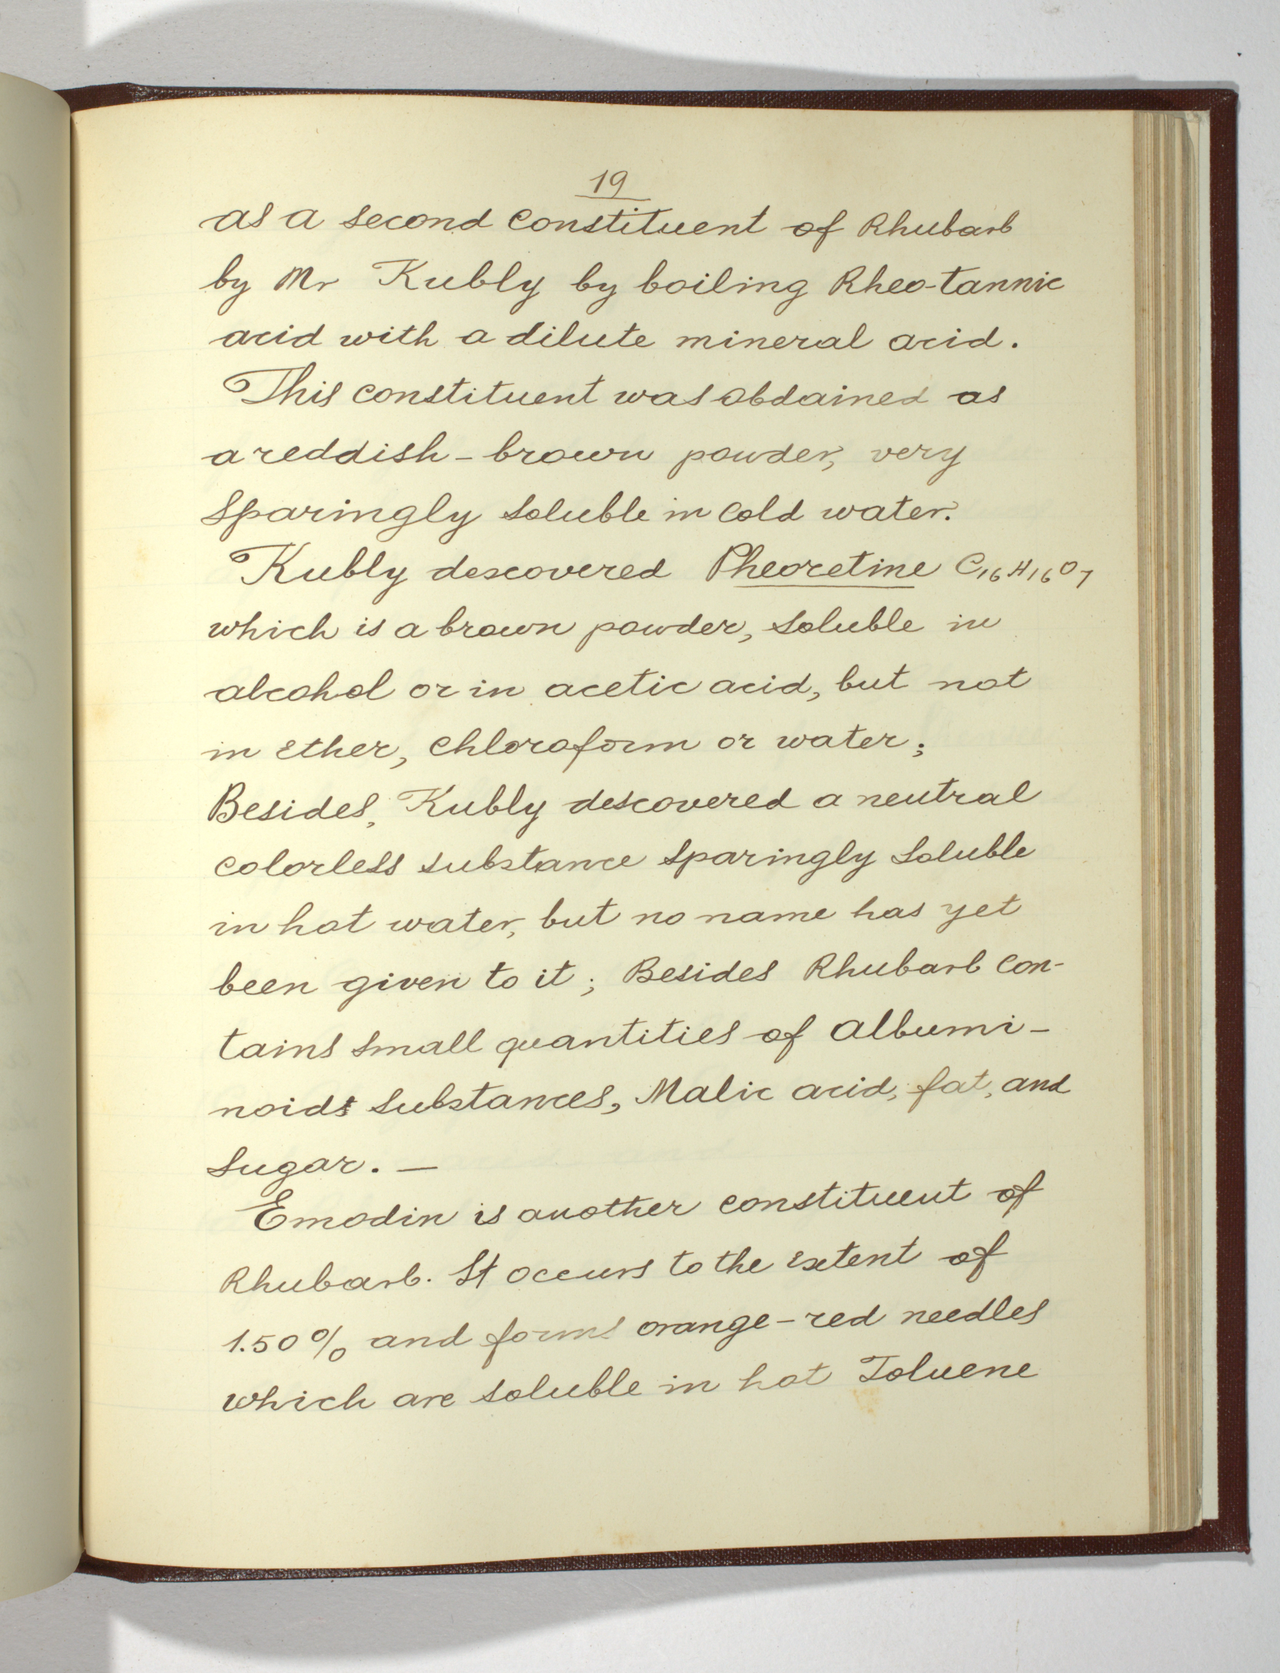 19
as a second constituent of Rhubarb
by Mr Kubly by boiling Rheo-tannic
acid with a dilute mineral acid.
This constituent was obdained as
a reddish-brown powder, very
sparingly soluble in cold water.
Kubly descovered Pheoretine C16H16O7
which is a brown powder, soluble in
alcohol or in acetic acid, but not
in ether, chloroform or water;
Besides, Kubly descovered a neutral
colorless substance sparingly soluble
in hot water, but no name has yet
been given to it; Besides Rhubarb con-
tains small quantities of albumi-
noids substances, Malic acid, fat, and
sugar. —
Emodin is another constituent of
Rhubarb. It occurs to the extent of
1.50% and forms orange-red needles
which are soluble in hot Toluene